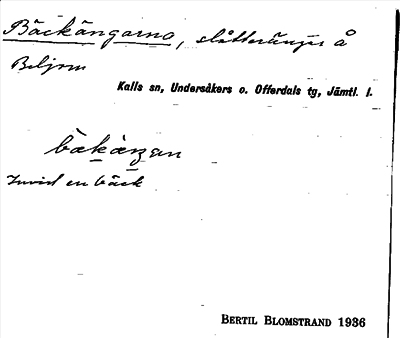 Bäckängarna, slåtterängar å
Beljom
Kalls sn, Undersåkers o. Offerdals tg, Jämtl. l.
bäkäŋan
Invid en bäck
BERTIL BLOMSTRAND 1936